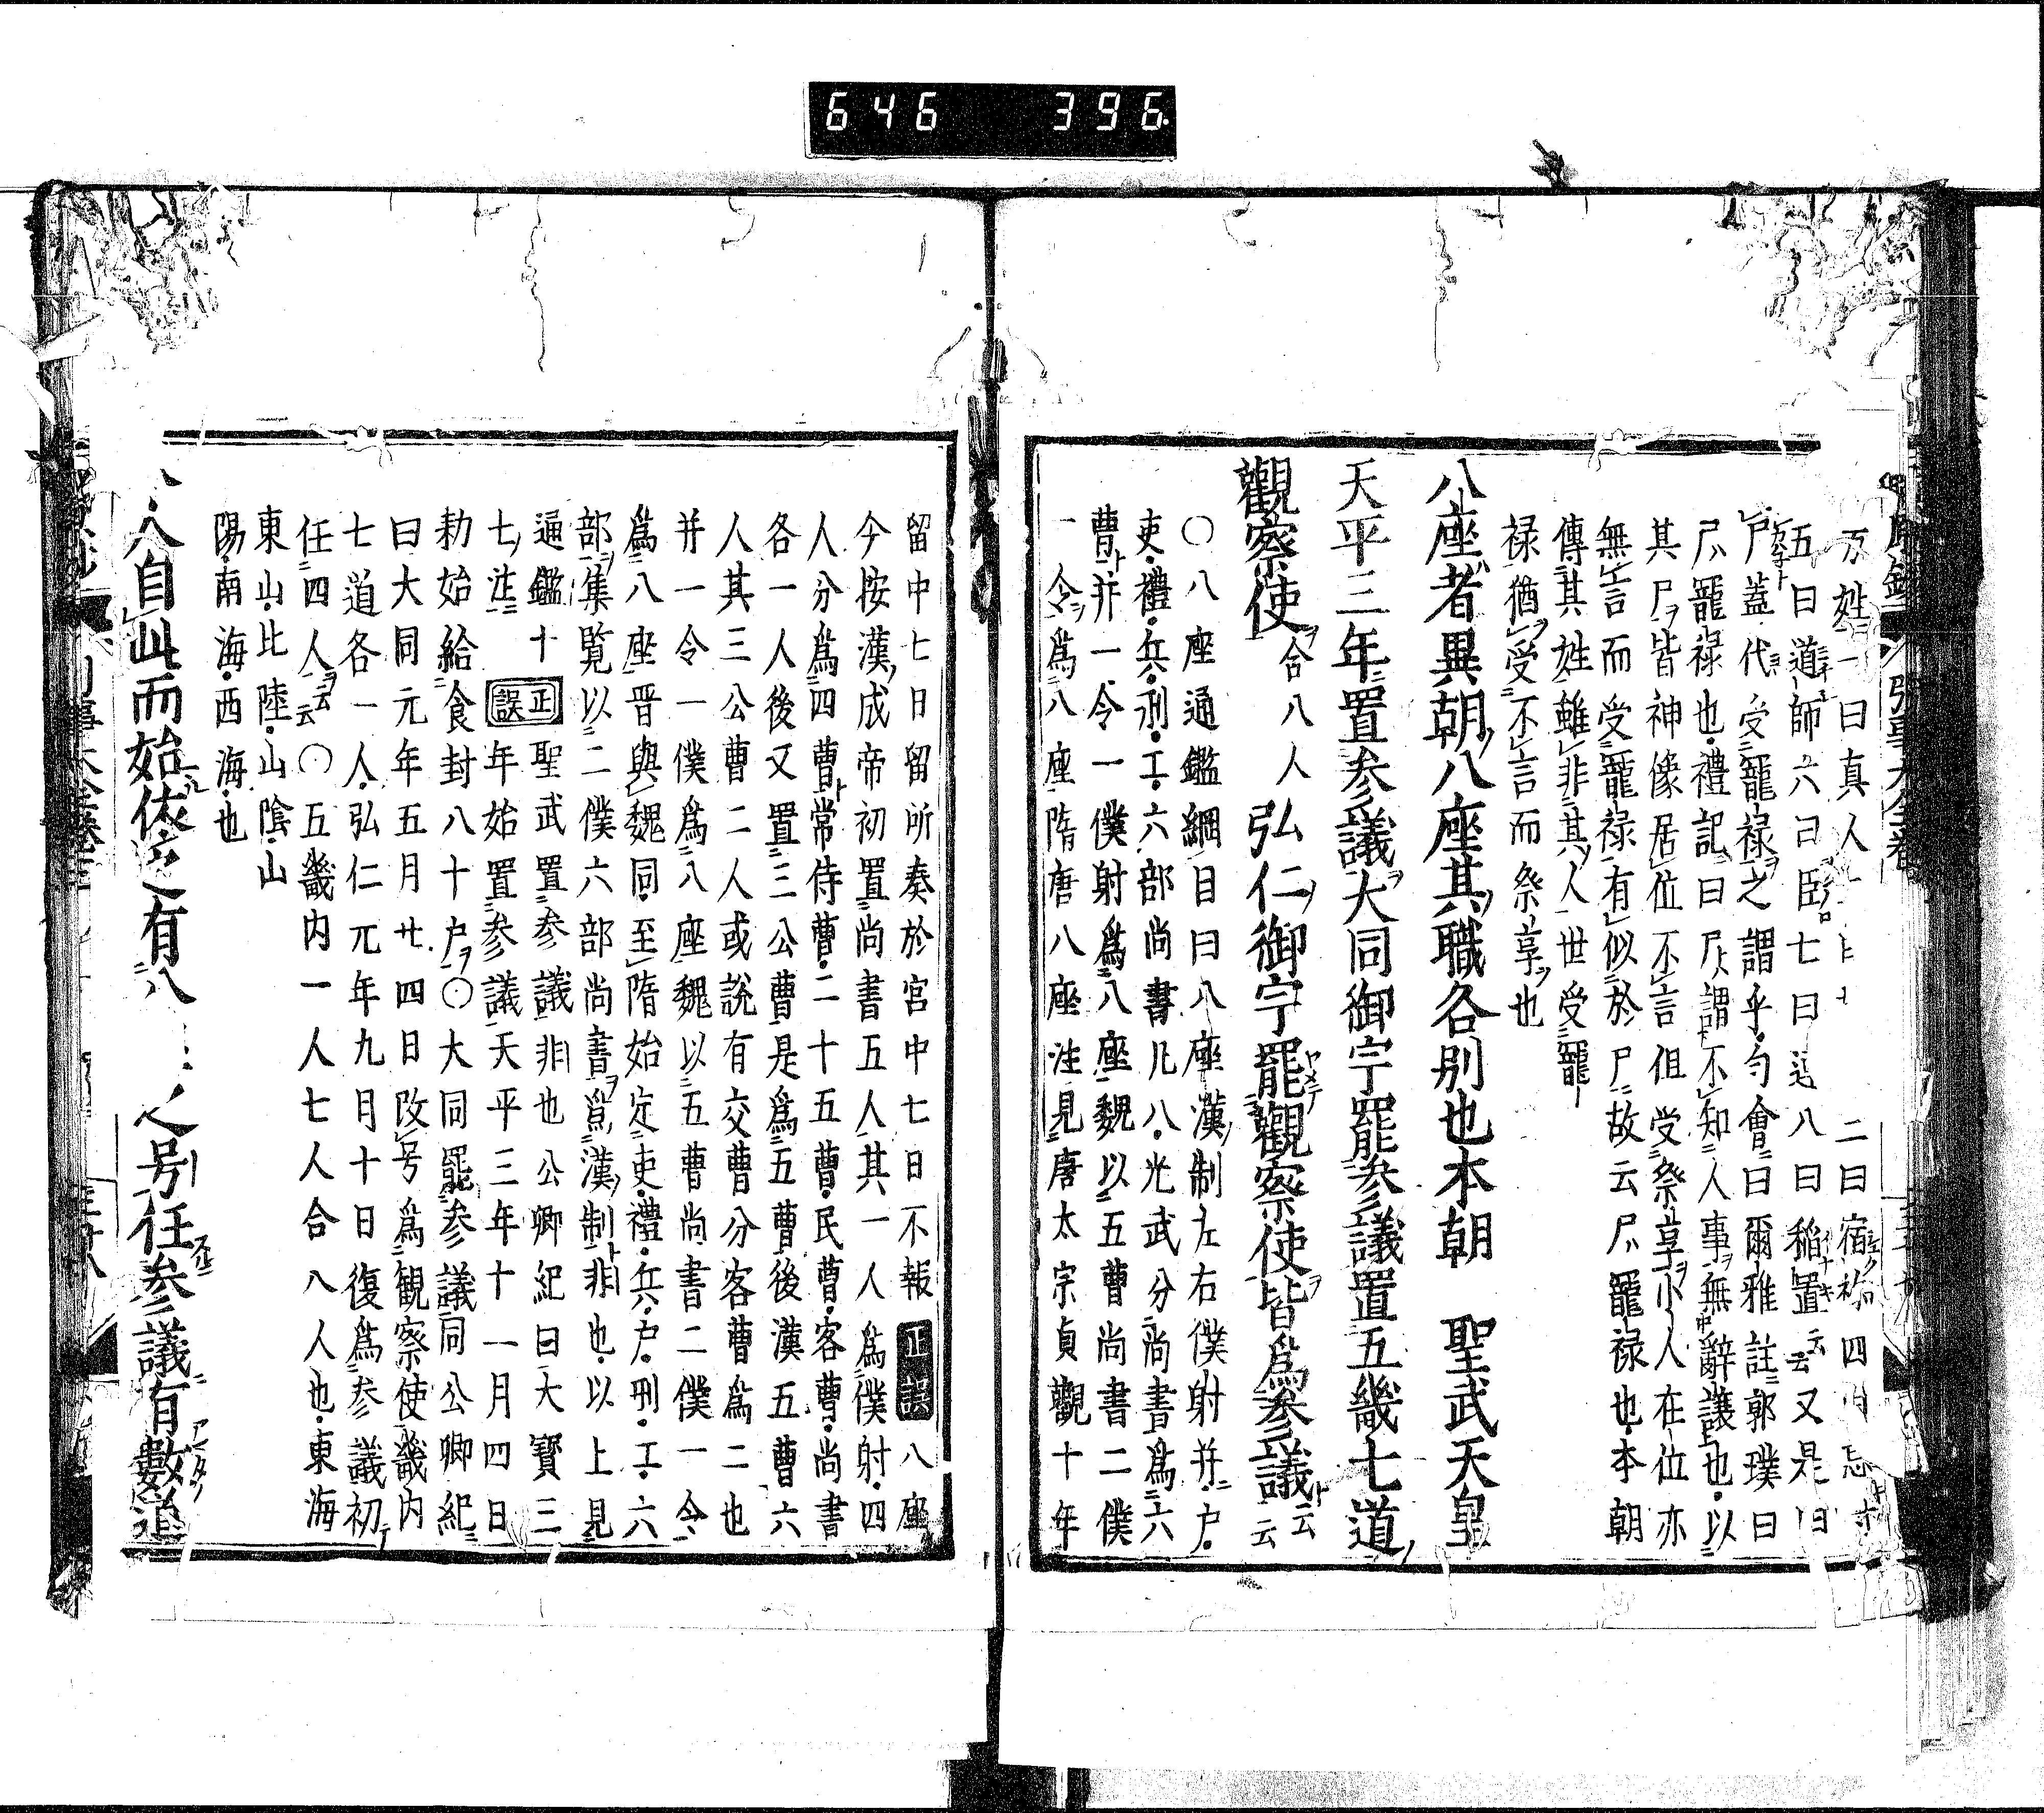 646 396
万姓一曰真人 二曰宿祢四曰忌
五曰道師六曰臣七曰 八曰稲置云云又是曰
尸蓋代受寵禄之謂乎勻會曰爾雅註郭璞曰
尸寵禄也禮記曰尸謂不知人事無辭讓也以
其尸皆神像居位不言但受祭享小人在位亦
無言而受寵禄有似於尸故云尸寵禄也本朝
傳其姓雖非其人世受寵
禄猶受不言而祭享也
八座者異朝八座其職各别也本朝 聖武天皇
天平三年置参議大同御宇罷参議置五畿七道
觀察使合八人弘仁御宇罷觀察使皆爲参議云云
○八座通鑑綱目曰八座漢制左右僕射并户
吏禮兵刑工六部尚書凡八光武分尚書爲六
曹并一令一僕射爲八座魏以五曹尚書二僕
一令爲八座隋唐八座注見唐太宗貞觀十年
留中七日留所奏於宮中七日不報正誤八座
今按漢成帝初置尚書五人其一人爲僕射四
人分爲四曹常侍曹二十五曹民曹客曹尚書
各一人後又置三公曹是爲五曹後漢五曹六
人其三公曹二人或説有交曹分客曹爲二也
并一令一僕爲八座魏以五曹尚書二僕一令
爲八座晋與魏同至隋始定吏禮兵户刑工六
部集覧以二僕六部尚書爲漢制非也以上見
通鑑十正誤聖武置参議非也公卿紀曰大寳三
七注年始置参議天平三年十一月四日
勅始給食封八十户○大同罷参議同公卿紀
曰大同元年五月廿四日改号爲観察使畿内
七道各一人弘仁元年九月十日復爲参議初
任四人云云○五畿内一人七人合八人也東海
東山北陸山陰山
陽南海西海也
八自此而始依之有八 之号任参議有數道